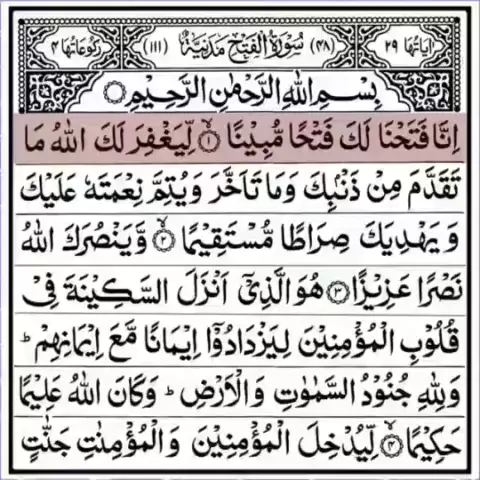 اٰیَاتُهَا ۲۹ (۴۸) سُوْرَةُ الْفَتْحِ مَدَنِیَّةٌ (۱۱۱) رُكُوْعَاتُهَا ۴
بِسْمِ اللهِ الرَّحْمٰنِ الرَّحِیْمِ
اِنَّا فَتَحْنَا لَكَ فَتْحًا مُّبِیْنًا ۙ‏﴿۱﴾ لِّیَغْفِرَ لَكَ اللهُ مَا
تَقَدَّمَ مِنْ ذَنْۢبِكَ وَمَا تَاَخَّرَ وَیُتِمَّ نِعْمَتَهٗ عَلَیْكَ
وَیَهْدِیَكَ صِرَاطًا مُّسْتَقِیْمًا ۙ‏﴿۲﴾ وَّیَنْصُرَكَ اللهُ
نَصْرًا عَزِیْزًا ﴿۳﴾ هُوَ الَّذِیْۤ اَنْزَلَ السَّكِیْنَةَ فِیْ
قُلُوْبِ الْمُؤْمِنِیْنَ لِیَزْدَادُوْۤا اِیْمَانًا مَّعَ اِیْمَانِهِمْ ؕ
وَلِلّٰهِ جُنُوْدُ السَّمٰوٰتِ وَالْاَرْضِ ؕ وَكَانَ اللهُ عَلِیْمًا
حَكِیْمًا ۙ‏﴿۴﴾ لِّیُدْخِلَ الْمُؤْمِنِیْنَ وَالْمُؤْمِنٰتِ جَنّٰتٍ